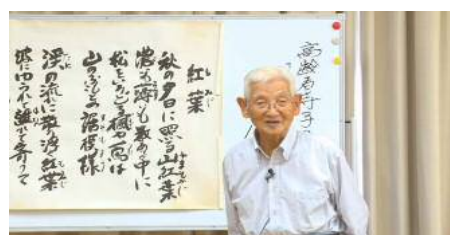 高齢者
紅葉
秋の夕日に照る山紅葉
濃も薄も数ある中に
松をいろどる楓や蔦は
山のふもとの裾模様
渓の流に散り浮く紅葉
波にゆられて離れて寄って